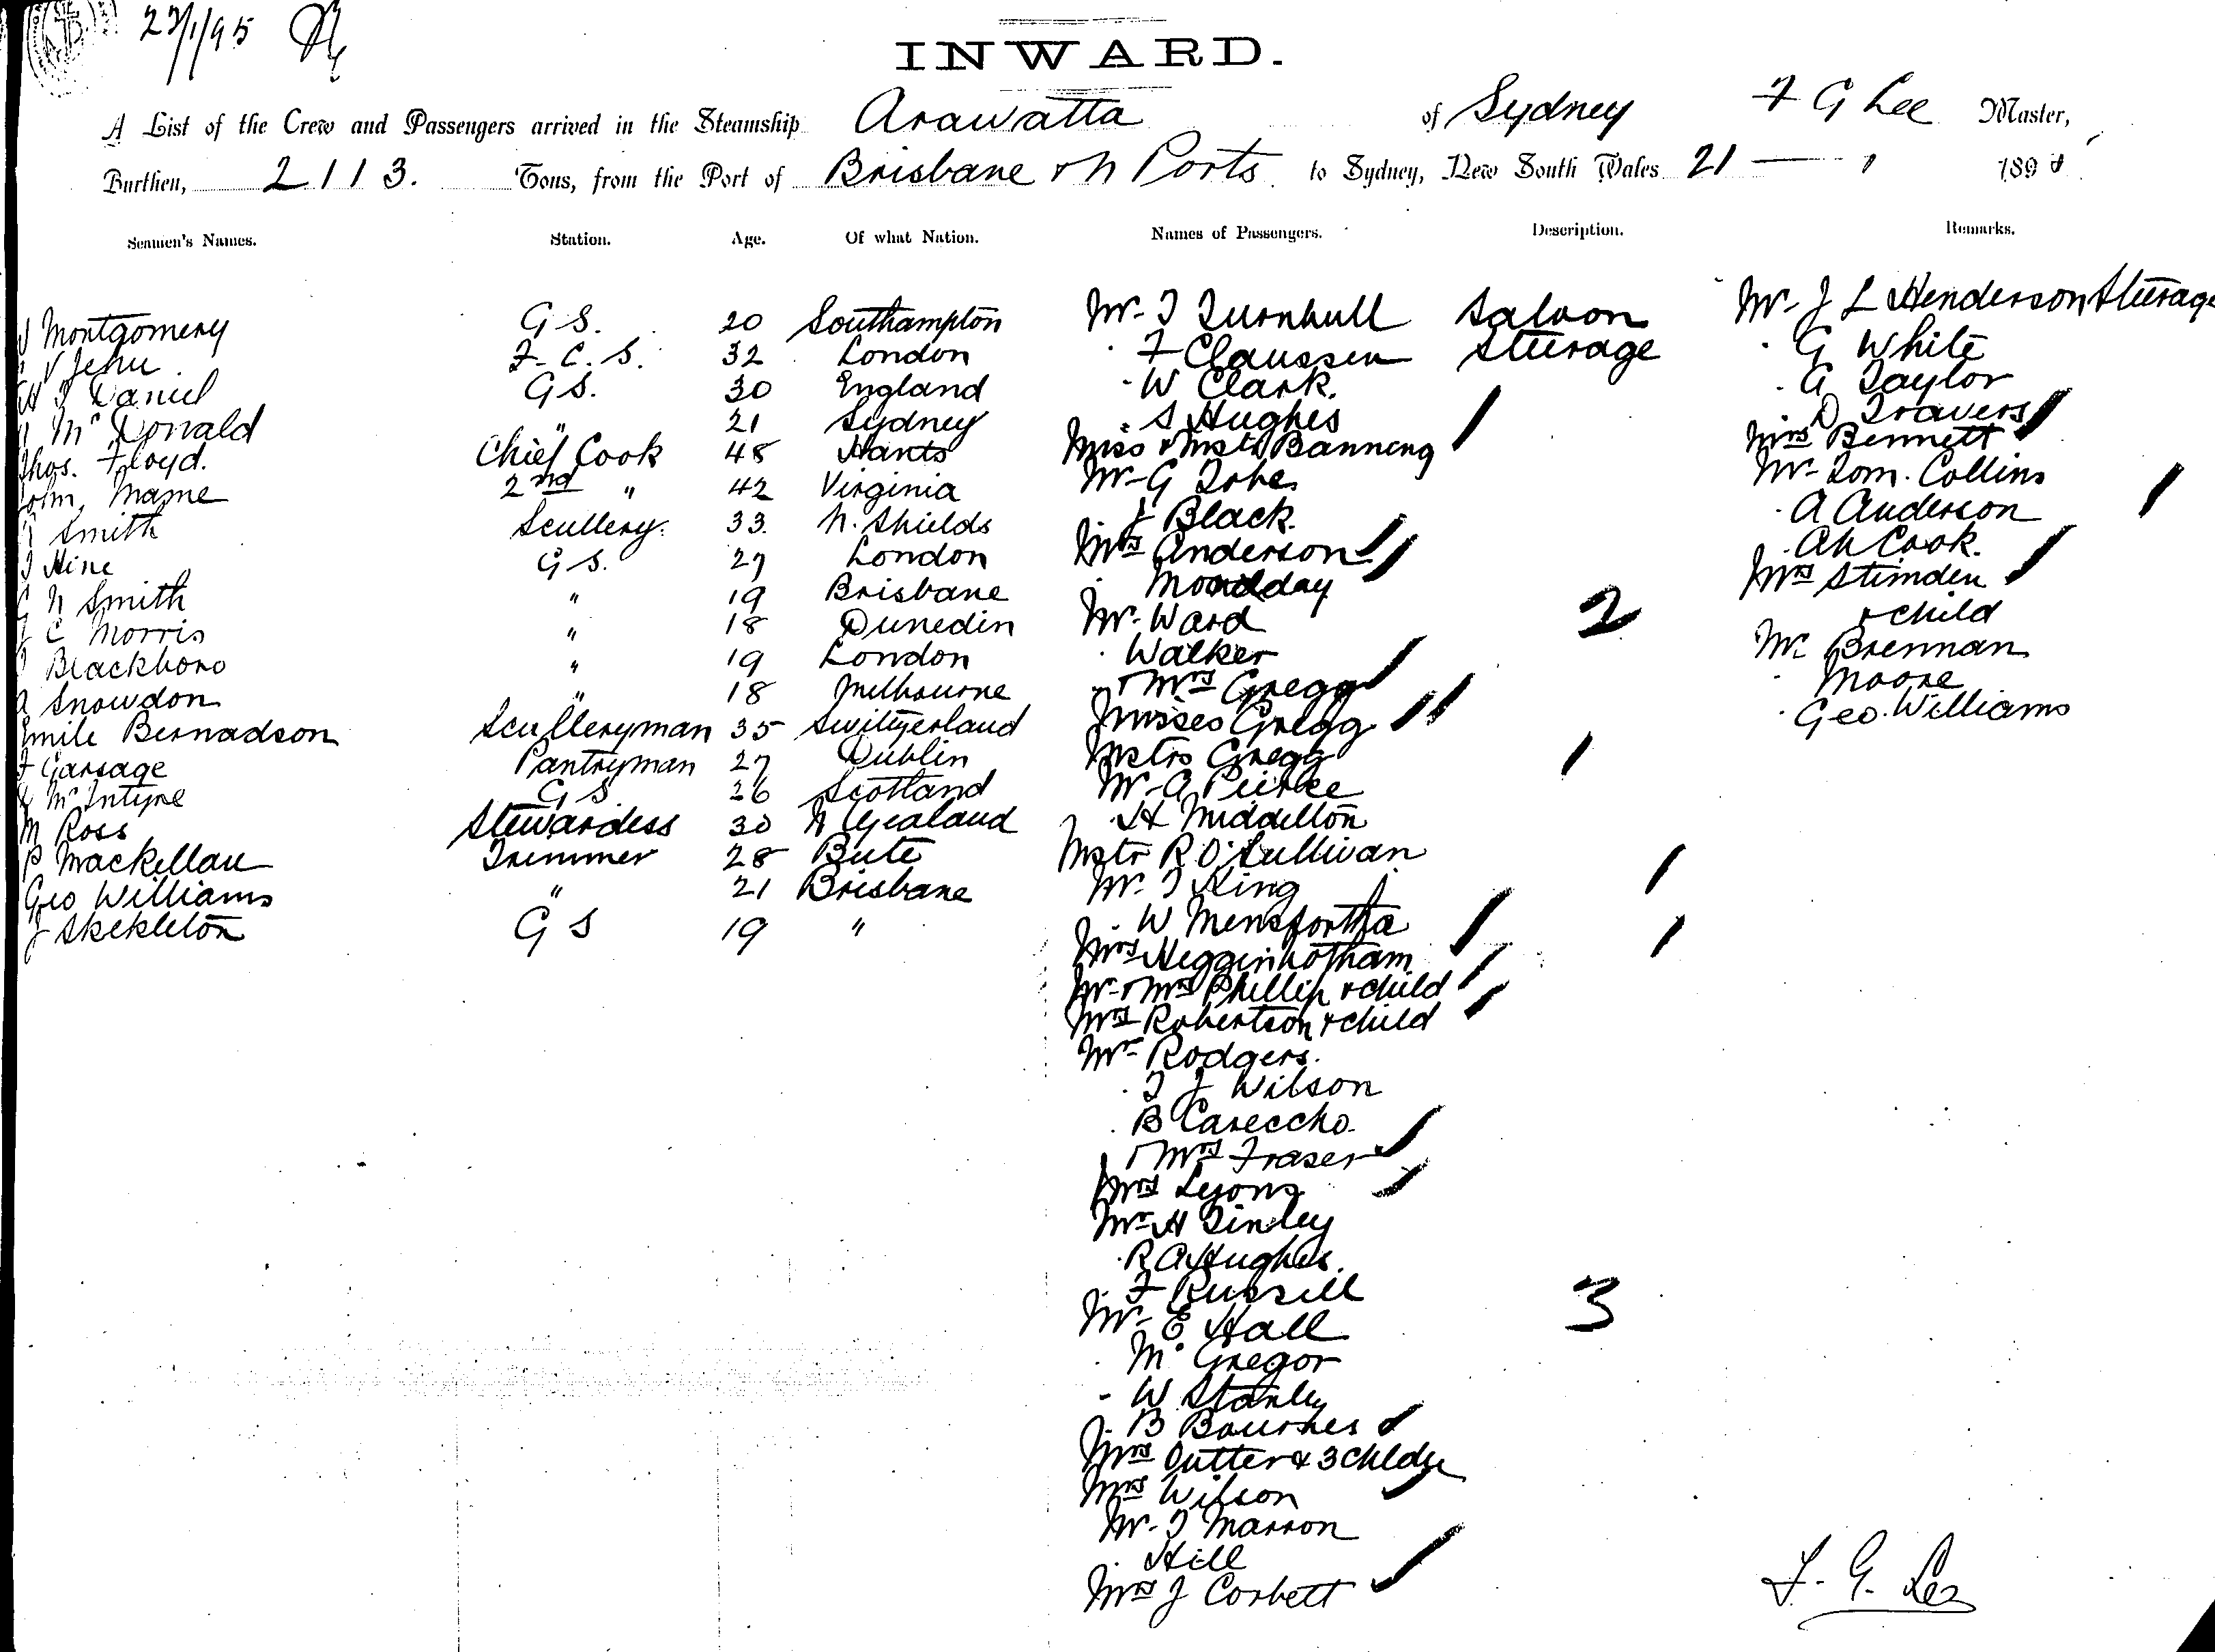 23/1/95
INWARD.
A List of the Crew and Passengers arrived in the Steamship Arawatta of Sydney F G Lee Master,
Burthen, 2113. Tons, from the Port of Brisbane & N Ports to Sydney, New South Wales 21 — 189
Seamen's Names. Station. Age. Of what Nation. Names of Passengers. Description. Remarks.
Montgomery G S. 20 Southampton
V Jehu F. C. S. 32 London
Daniel G S. 30 England
McDonald " 21 Sydney
Thos. Floyd. Chief Cook 48 Hants
John Mayne 2nd " 42 Virginia
Smith Scullery. 33. N. Shields
Hine G S. 27 London
N Smith " 19 Brisbane
C Morris " 18 Dunedin
Blackboro " 19 London
Snowdon " 18 Melbourne
Emile Bernadson Sculleryman 35 Switzerland
F Garsage Pantryman 27 Dublin
McIntyre G S 26 Scotland
M Ross Stewardess 30 N Zealand
P Mackellau Trimmer 28 Bute
Geo Williams " 21 Brisbane
J Skekleton G S 19 "
Mr. T Turnbull Saloon
" F Claussen Steerage
" W Clark.
" S Hughes
Miss & Mstr Banning
Mr G Tobe
" J Black.
Mrs Anderson
" Monday
Mr. Ward 2
" Walker
" & Mrs Gregg
Misses Gregg
Mstrs Gregg
Mr. A Peirce
" H Middelton
Mstr R O'Sullivan
Mr. T King
" W Mensfortha
Mrs Higginbotham
Mr & Mrs Phillip & child
Mrs Robertson & child
Mr Rodgers.
" T J Wilson
" B Careccho
" & Mrs Fraser
Mrs Lyons
Mr H Tinley
" R A Hughes.
" F Russell
Mr. E Hall 3
" McGregor
" W Stanley
" B Bournes
Mrs Outter & 3 chldn
Mrs Wilson
Mr. T Marron
" Hill
Mrs J Corbett
Mr. J L Henderson Steerage
" G White
" A Taylor
" D Travers
Mrs Bennett
Mr Tom. Collins
" A Anderson
" Ah Cook.
Mrs Stimden
& child
Mr. Brennan
" Moore
" Geo. Williams
F. G. Lee